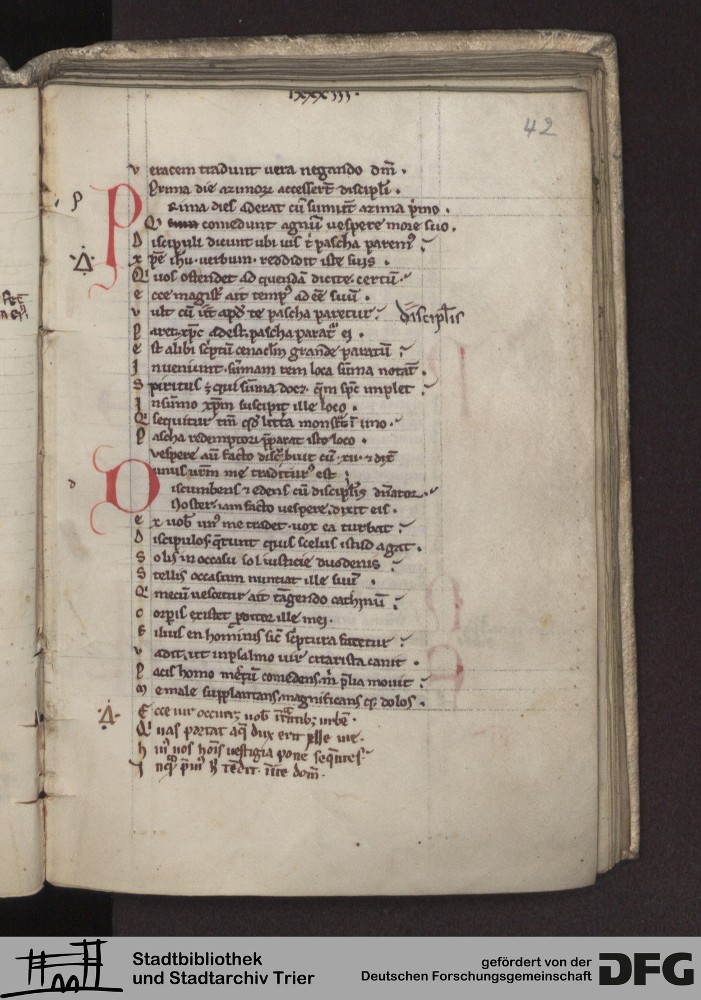 lxxxiii.
42
v eracem tradunt vera negando dm̄.
Prima die azimoꝝ accesserᵗ discipl̄i.
P Rima dies aderat cū sumūt azima p̄mo.
Q comedunt agnū vespere more suo.
D iscipuli dicunt ubi vis t̄ pascha paremꝰ
x pē ihū. verbum. reddidit iste suis.
Q uos ostendet ad quendā dicite. certū.
e cce magistr̄ ait tempꝰ adēē suū.
v ult cū apd̓ te pascha paretur discipl̄is
P aret. xp̄c adest. pascha paratᷓ ei.
e st alibi sc̄ptū cenaclm̄ grande paratū
I nveniunt. sūmam rem loca sūma notāt.
S piritus qui sūma docꝫ. qm̄ sp̄c implet
I n sūmo xp̄m suscipit ille loco.
Q sequitur tm̄ qd̓ lit̄ta monstrᵗ ī imo.
P ascha redemptori p̄parat isto loco.
vespere aū facto discūbuit cū .xii. ⁊ dix̄
D unus vrm̄ me traditurꝰ est
iscumbens ⁊ edens cū discipl̄is dn̄ator
Noster. iam facto vespere. dixit eis.
e x vob̄ unꝰ me tradet. vox ea turbat
D iscipulos. q̄runt quis scelus istud agat.
S olis in occasu sol iusticie duodenis
S tellis occasum nuntiat ille suū.
Q mecū vescetur ait tāgendo cathinū
c orp̄is existet p̄ditor ille mei.
F ilius en hominis sic̄ sc̄ptura fatetur
v adit. ut in psalmo vir citarista canit.
P acis homo meꝰ cū comedens. m̄ p̄lia movit
M e male supplantans. magnificans qꝫ dolos.
E cce vir occurꝫ vob̄ urbē.
Q uas portat aq̄ dux erit ēsse vie.
h uiꝰ vos hōis vestigia pone seqͤntes
I
Stadtbibliothek
und Stadtarchiv Trier
gefördert von der
Deutschen Forschungsgemeinschaft
DFG